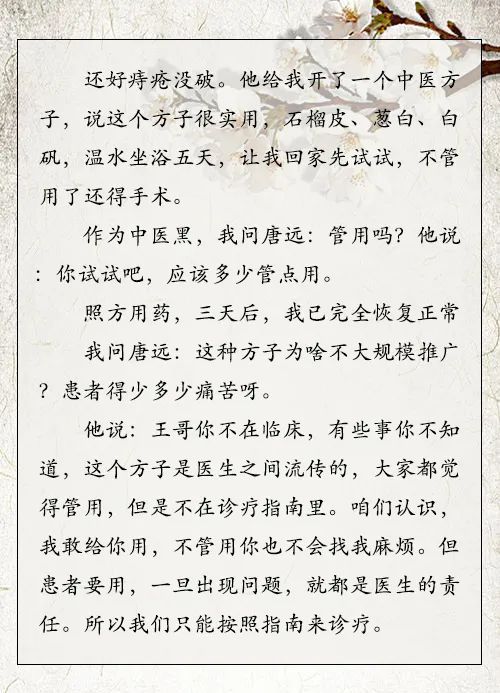 还好痔疮没破。他给我开了一个中医方
子，说这个方子很实用，石榴皮、葱白、白
矾，温水坐浴五天，让我回家先试试，不管
用了还得手术。
作为中医黑，我问唐远：管用吗？他说
：你试试吧，应该多少管点用。
照方用药，三天后，我已完全恢复正常
我问唐远：这种方子为啥不大规模推广
？患者得少多少痛苦呀。
他说：王哥你不在临床，有些事你不知
道，这个方子是医生之间流传的，大家都觉
得管用，但是不在诊疗指南里。咱们认识，
我敢给你用，不管用你也不会找我麻烦。但
患者要用，一旦出现问题，就都是医生的责
任。所以我们只能按照指南来诊疗。